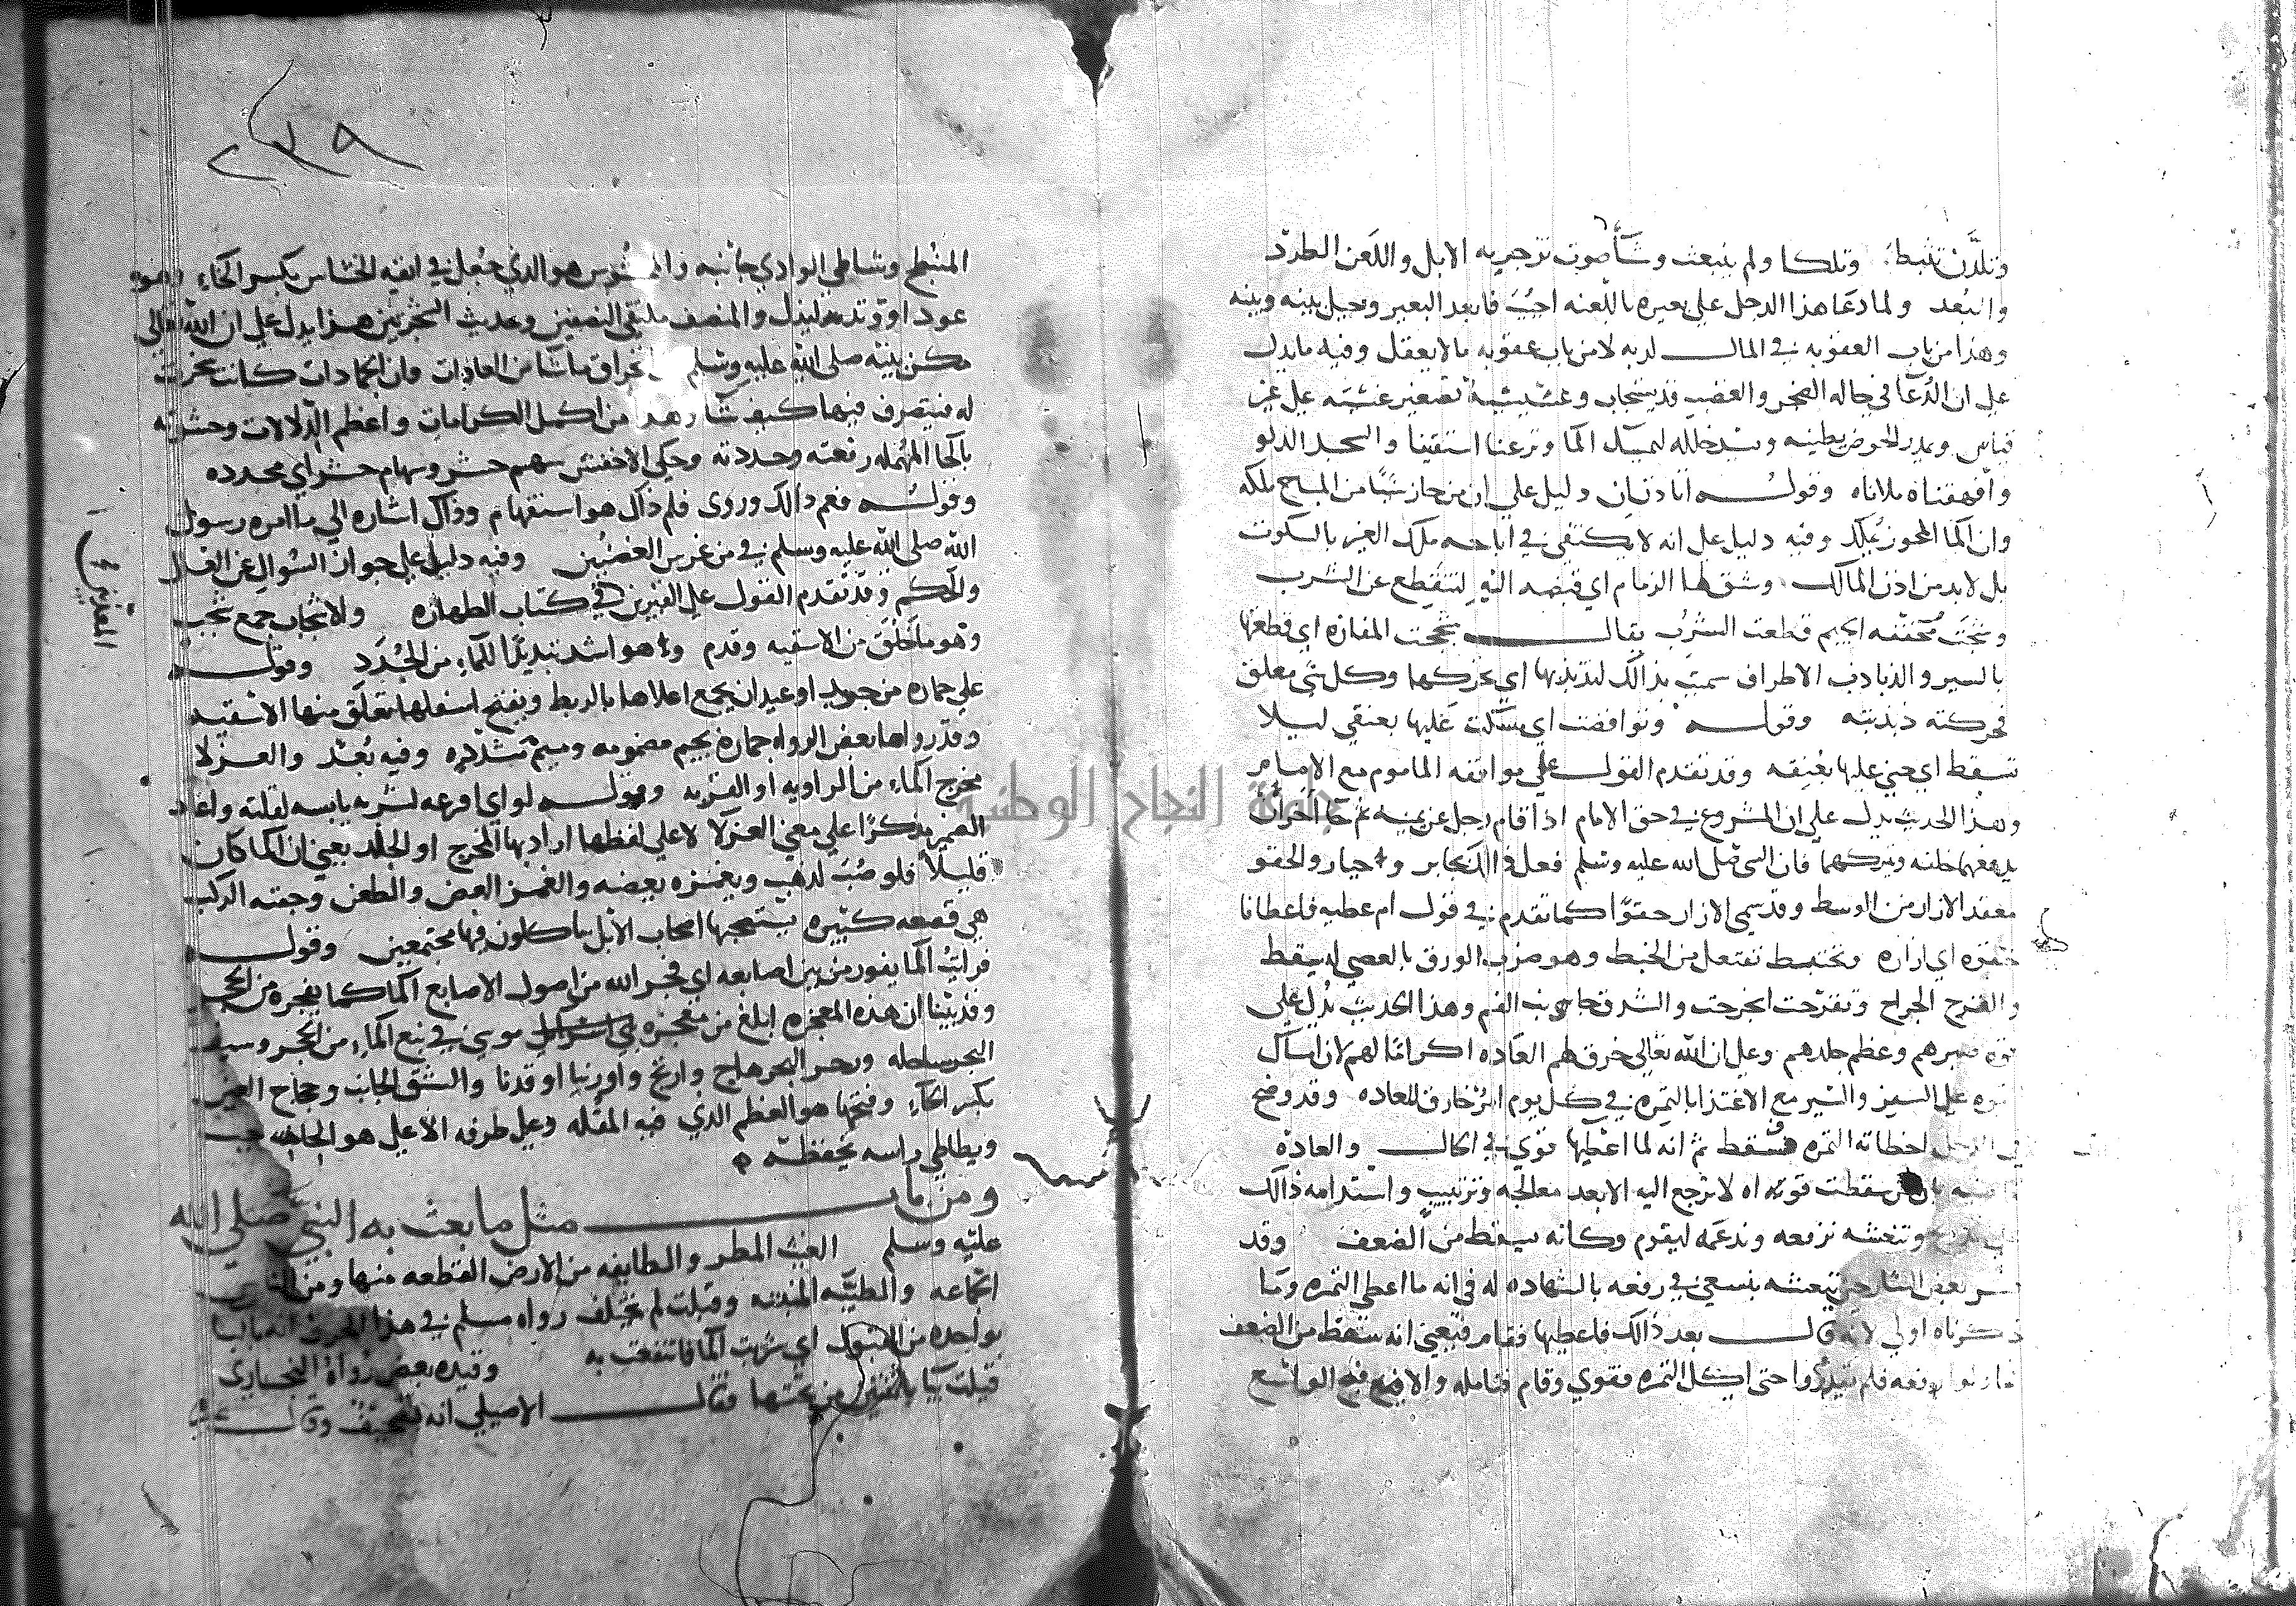 وتلدن تلبط وتلكا ولم ينبعث وشأ صوت تزجر به الابل واللعن الطرد
والبعد ولما دعا هذا الرجل على بعيره باللعنه اجيب فابعد البعير وحيل بينه وبينه
وهذا من باب العقوبه في المال لربه لا من باب عقوبه ما لا يعقل وفيه ما يدل
على ان الدعا في حاله الضجر والغضب قد يستجاب وعشيشية تصغير عشيه على غير
قياس ويمدر الحوض يطينه ويسد خلله ليمسك الما ونزعنا استقينا والسجل الدلو
وافهقناه ملاناه وقوله اتاذنان دليل على ان من حاز شيا من المباح ملكه
وان الما المحوز يملك وفيه دليل على انه لا يكتفى في اباحه ملك الغير بالسكوت
بل لا بد من اذن المالك وشنق لها الزمام اي قبضه اليه لتنقطع عن الشرب
وشجت مخففه الجيم قطعت الشرب يقال شججت المفازه اي قطعتها
بالسير والذباذب الاطراف سميت بذالك لتذبذبها اي تحركها وكل شي معلق
فحركته ذبذبته وقوله وتواقصت اي مسكت عليها بعنقي ليلا
تسقط اي حنى عليها بعنقه وقد تقدم القول على مواقفه الماموم مع الامام
وهذا الحديث يدل على ان المشروع في حق الامام اذا قام رجل عن يمينه ثم جا اخر ان
يدفعهما خلفه ويتركهما فان النبي صلى الله عليه وسلم فعل ذالك بجابر وجبار والحقو
معقد الازار من الوسط وقد سمي الازار حقوا كما تقدم في قول ام عطيه فاعطانا
حقوه اي ازاره ونختبط نفتعل من الخبط وهو ضرب الورق بالعصي ليسقط
والقرح الجراح وتقرحت انجرحت والشدق جانب الفم وهذا الحديث يدل على
قوه صبرهم وعظم جلدهم وعلى ان الله تعالى خرق لهم العاده اكراما لهم لان امساك
قوه على السفر والسير مع الاغتذا بالتمره في كل يوم امر خارق للعاده وقد وضح
اخطاته التمره فسقط ثم انه لما اعطيها قوي في الحال والعاده
سقطت قوته انه لا ترجع اليه الا بعد معالجه وترتيب واستدامه ذالك
وتنعشه نرفعه وندعمه ليقوم وكانه سقط من الضعف وقد
بعض الشارحين تنعشه بنسعى في رفعه بالشهاده له في انه ما اعطي التمره وما
ذكرناه اولى لانه قال بعد ذالك فاعطيها فقام فيعني انه سقط من الضعف
رفعه فلم يقدروا حتى اكل التمره فقوي وقام فتامله والافيح الواسع
المنبطح وشاطي الوادي جانبه والمخشوش هو الذي جعل في انفه الخشاش بكسر الخاء وهو
عود او وتد ليذل والمنصف ملتقى النصفين وحديث الشجرتين هذا يدل على ان الله تعالى
مكن نبيه صلى الله عليه وسلم من خراق ما شا من العادات فان الجمادات كانت سخرت
له فيتصرف فيها كيف شا وهذا من اكمل الكرامات واعظم الدلالات وحشرته
بالحا المهمله رققته وحددته وحكى الاخفش سهم حشر وسهام حشر اي محدده
وقوله فعم ذالك وروى فلم ذاك هو استفهام وذاك اشاره الى ما امره رسول
الله صلى الله عليه وسلم في من غرس الغصنين وفيه دليل على جواز السوال عن العلل
والحكم وقد تقدم القول على القبرين في كتاب الطهاره والاشجاب جمع شجب
وهو ما خلق من الاسقيه وقدم وهو اشد تبديلا للماء من الجدد وقوله
على حماره من جريد او عيدان يجمع اعلاها بالربط ويفتح اسفلها تعلق منها الاسقيه
وقد رواها بعض الرواه جماره بجيم مضمومه وميم مشدده وفيه بعد والعزلا
مخرج الماء من الراويه او القربه وقوله لو اي افرعه لشربه يابسه لقلته واعاد
الضمير مذكرا على معنى العزلا لا على لفظها اراد بها المخرج او الجلد يعني ان الما كان
قليلا فلو صب لذهب ويغمزه بعضه والغمز العض والطعن وجفنه الركب
هي قصعه كبيره يستصحبها اصحاب الابل ياكلون فيها مجتمعين وقوله
فرايت الما يفور من بين اصابعه اي فجر الله من اصول الاصابع الما كما يفجره من الحجر
وقد بينا ان هذه المعجزه ابلغ من معجزه موسى في نبع الماء من الحجر وسيف
البحر ساحله وزخر البحر هاج وارتج واورينا اوقدنا والشق الجانب وحجاج العين
بكسر الحاء وفتحها هو العظم الذي فيه المقله وعلى طرفه الاعلى هو الحاجب
ويطاطي راسه يخفظه
ومن باب مثل ما بعث به النبي صلى الله
عليه وسلم الغيث المطر والطايفه من الارض القطعه منها ومن الناس
الجماعه والطيبه المنبته وقبلت لم يختلف رواه مسلم في هذا الحرف انه بالبا
بواحده من القبول اي شربت الما فانتفعت به وقيده بعض رواه البخاري
قيلت بيا باثنتين من تحتها وقال الاصيلي انه تصحيف وقال